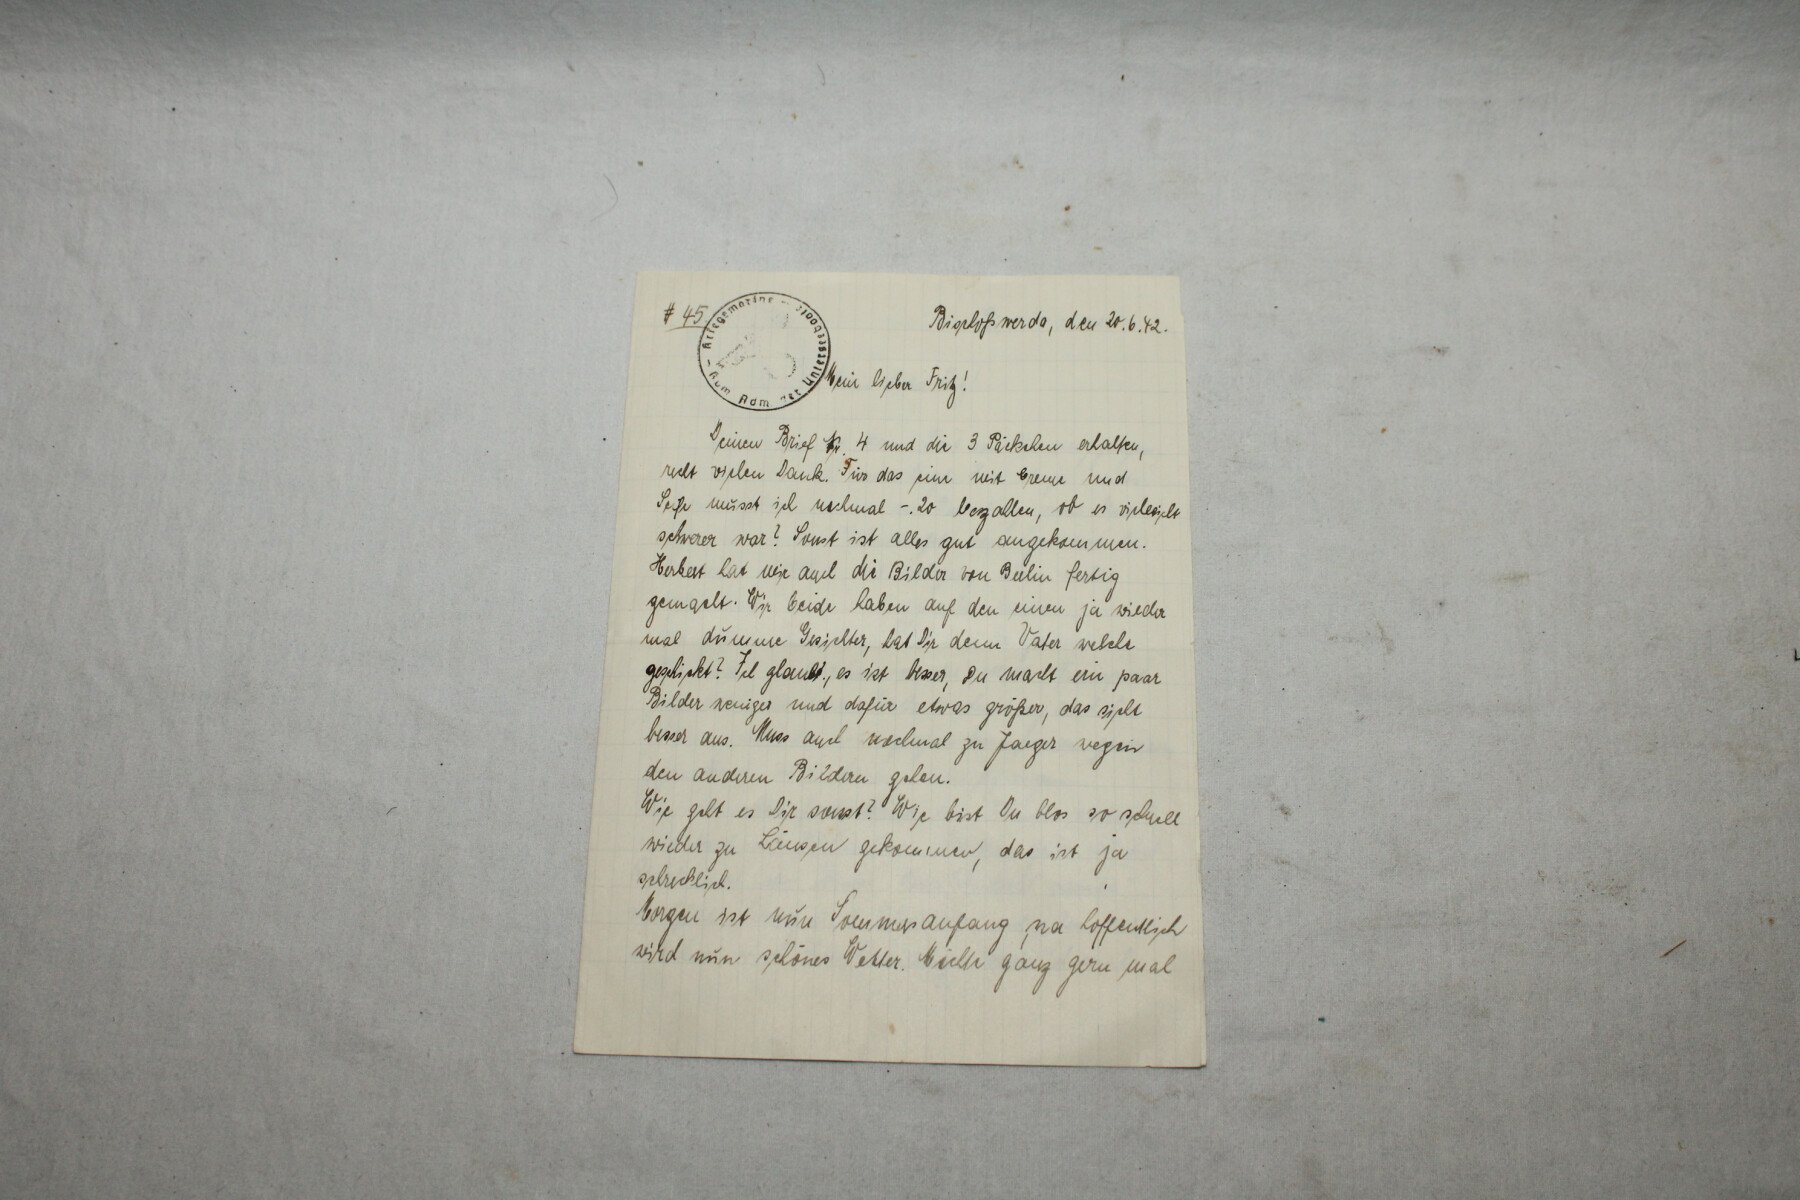 # 45
Kriegsmarine - Kom Adm der Unterseeboote -
Bischofswerda, den 20.6.42.
Mein lieber Fritz!
Deinen Brief Nr. 4 und die 3 Päckchen erhalten,
recht vielen Dank. Für das eine mit Creme und
Seife musst ich nochmal -.20 bezahlen, ob es vielleicht
schwerer war? Sonst ist alles gut angekommen.
Herbert hat mir auch die Bilder von Berlin fertig
gemacht. Wir beide haben auf den einen ja wieder
mal dumme Gesichter, hat Dir denn Vater welche
geschickt? Ich glaube, es ist besser, Du machst ein paar
Bilder weniger und dafür etwas größer, das sieht
besser aus. Muss auch nochmal zu Jaeger wegen
den anderen Bildern gehen.
Wie geht es Dir sonst? Wie bist Du blos so schnell
wieder zu Läusen gekommen, das ist ja
schrecklich.
Morgen ist nun Sommersanfang, na hoffentlich
wird nun schönes Wetter. Möchte ganz gern mal